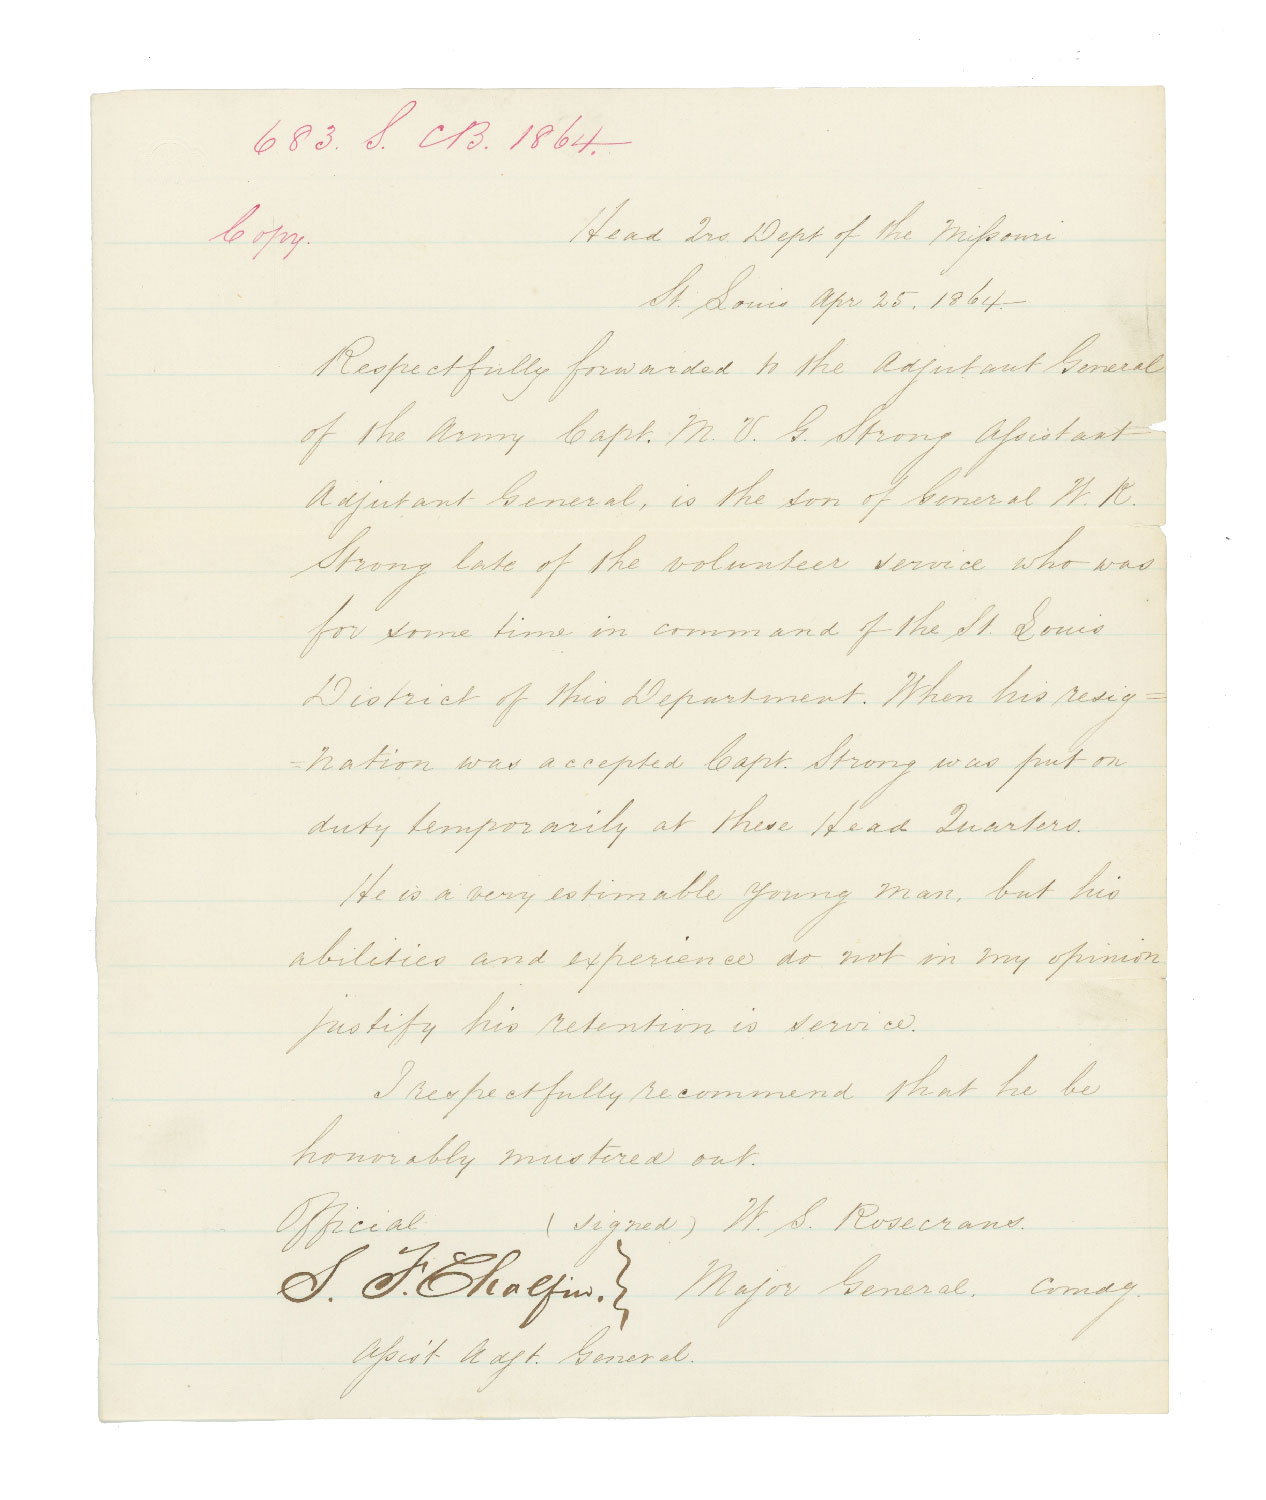 683. S. CB. 1864.
Copy.
Head Qrs. Dept of the Missouri
St. Louis Apr 25. 1864.
Respectfully forwarded to the Adjutant General
of the Army Capt. M. V. G. Strong Assistant
Adjutant General, is the son of General W. K.
Strong late of the volunteer service who was
for some time in command of the St. Louis
District of this Department. When his resig=
=nation was accepted Capt. Strong was put on
duty temporarily at these Head Quarters.
He is a very estimable young man, but his
abilities and experience do not in my opinion
justify his retention is service.
I respectfully recommend that he be
honorably mustered out.
Official (signed) W. S. Rosecrans.
S. F. Chalfin. } Major General. comdg.
Assis't Adgt. General.